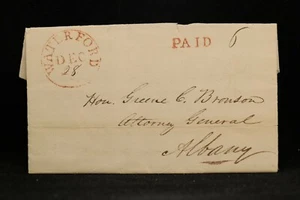 WATERFORD
DEC
28
PAID 6
Hon. Greene C. Bronson
Attorney General
Albany